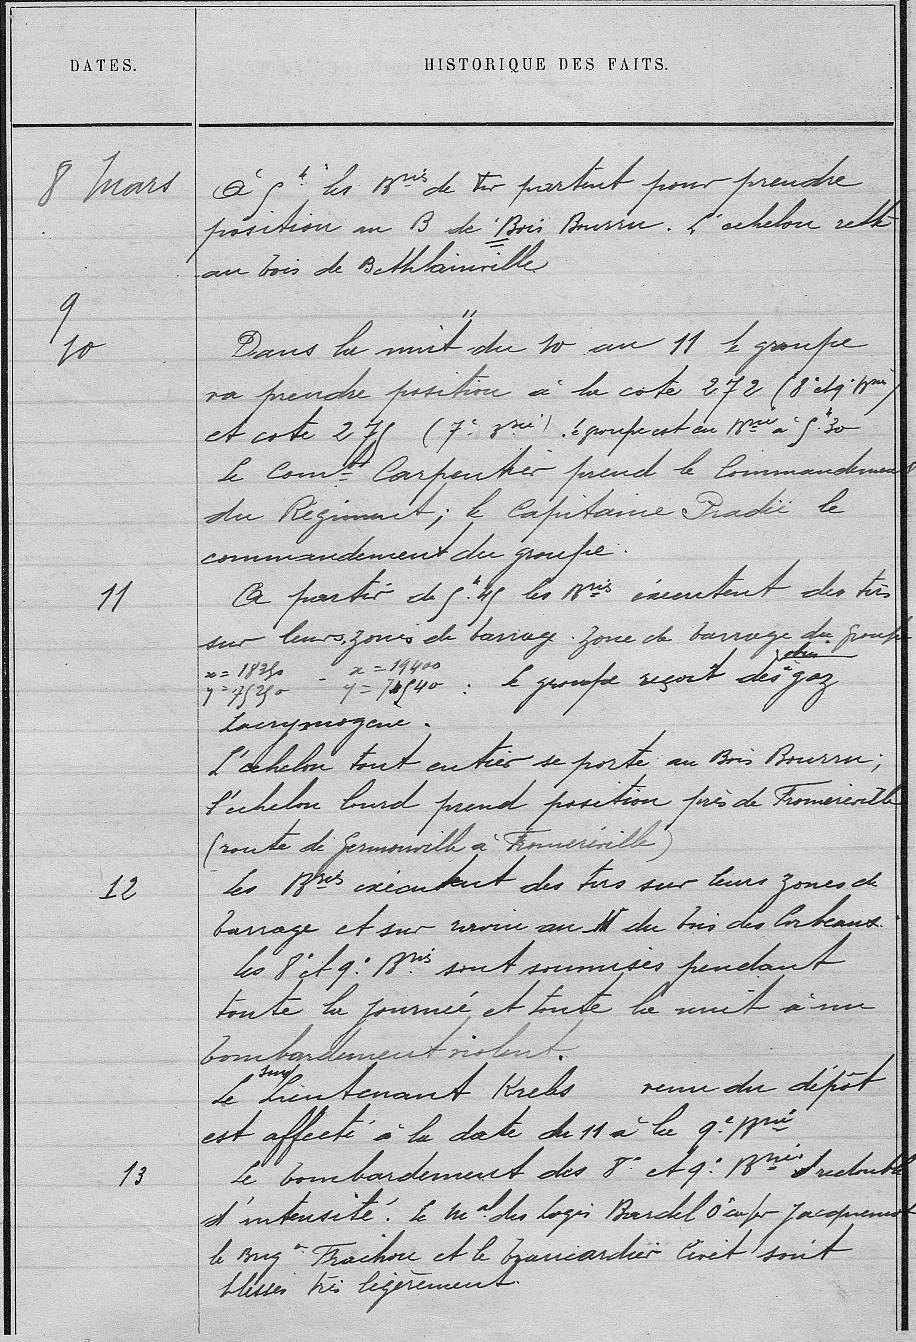 DATES. HISTORIQUE DES FAITS.
8 Mars À 5h les Bries de Tir partent pour prendre
position au B de Bois Bourru. L'echelon reste
au bois de Bethlainville
9
10 Dans la nuit du 10 au 11 le groupe
va prendre position à la cote 272 (8e et 9e Bries)
et cote 275 (7e Brie) le groupe est en Brie à 5h30
Le Comdt Carpentier prend le Commandement
du Régiment; le Capitaine Pradié le
commandement du groupe.
11 A partir de 5h45 les Bries éxecutent des tirs
sur leurs zones de barrage. Zone de barrage du groupe
x = 18350 - x = 19400
y = 75250 y = 75540 : le groupe reçoit des obus à gaz
Lacrymogene.
L'echelon tout entier se porte au Bois Bourru;
l'echelon lourd prend position près de Fromeréville
(route de Germonville à Fromeréville)
12 Les Bries exécutent des tirs sur leurs zones de
barrage et sur ravin au N du bois des Corbeaux.
les 8e et 9e Bries sont soumises pendant
toute la journée et toute la nuit à un
bombardement violent.
Le sous Lieutenant Krebs venu du dépôt
est affecté à la date du 11 à la 9e Brie
13 Le bombardement des 8e et 9e Bries redouble
d'intensité. Le Mal des logis Bardel Jacquemot
le Brigr et le brancardier sont
blessés très légèrement.